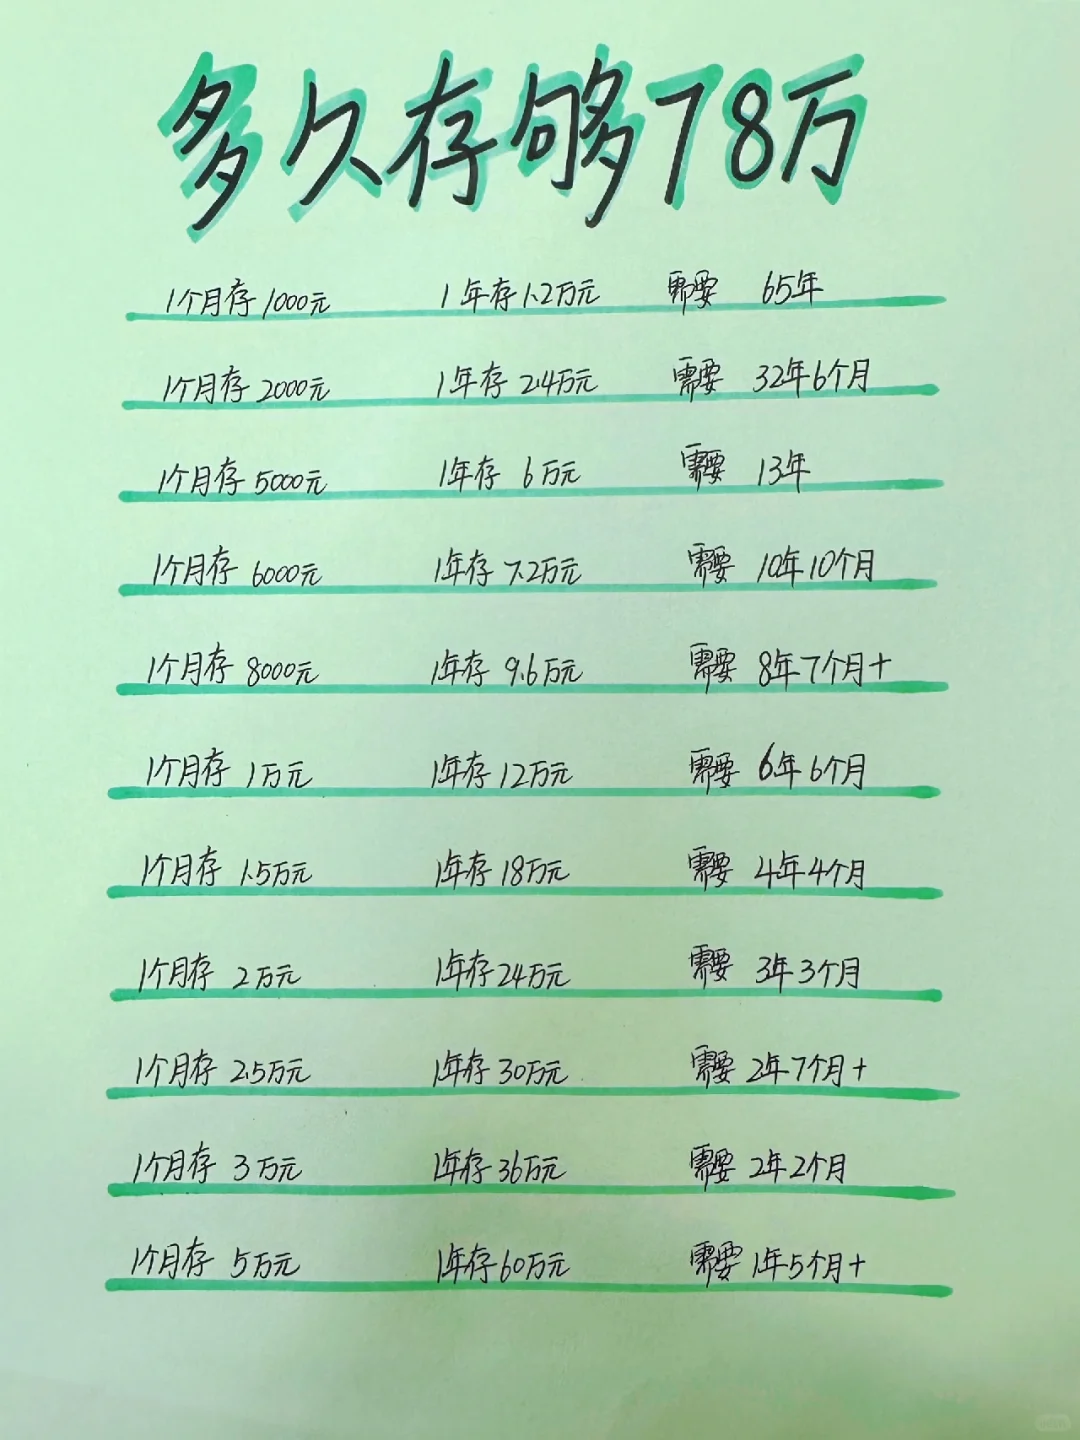 多久存够78万
1个月存1000元 1年存1.2万元 需要 65年
1个月存2000元 1年存2.4万元 需要 32年6个月
1个月存5000元 1年存 6万元 需要 13年
1个月存 6000元 1年存 7.2万元 需要 10年10个月
1个月存 8000元 1年存 9.6万元 需要 8年7个月+
1个月存 1万元 1年存 12万元 需要 6年6个月
1个月存 1.5万元 1年存 18万元 需要 4年4个月
1个月存 2万元 1年存24万元 需要 3年3个月
1个月存 2.5万元 1年存 30万元 需要 2年7个月+
1个月存 3万元 1年存36万元 需要 2年2个月
1个月存 5万元 1年存60万元 需要 1年5个月+